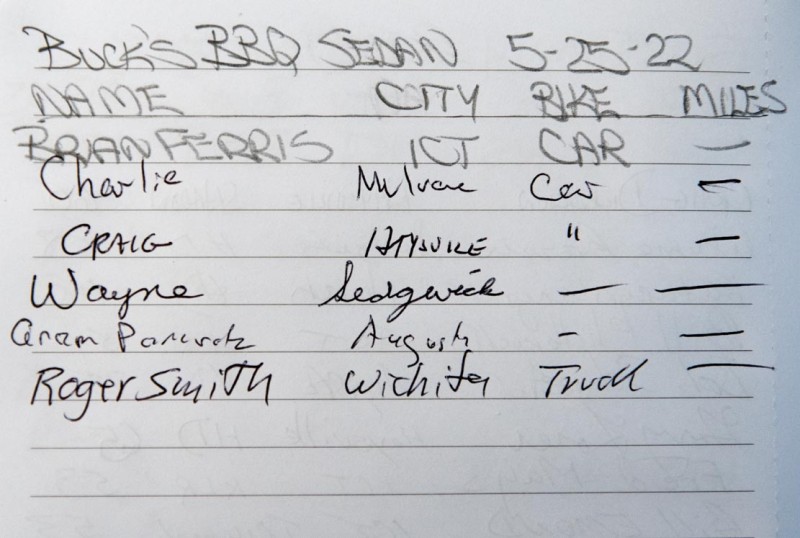 BUCK'S BBQ SEDAN 5-25-22
NAME CITY BIKE MILES
BRIAN FERRIS ICT CAR —
Charlie Mulvane Car —
CRAIG HAYSVILLE " —
Wayne Sedgwick — —
Augusta - —
Roger Smith Wichita Truck —